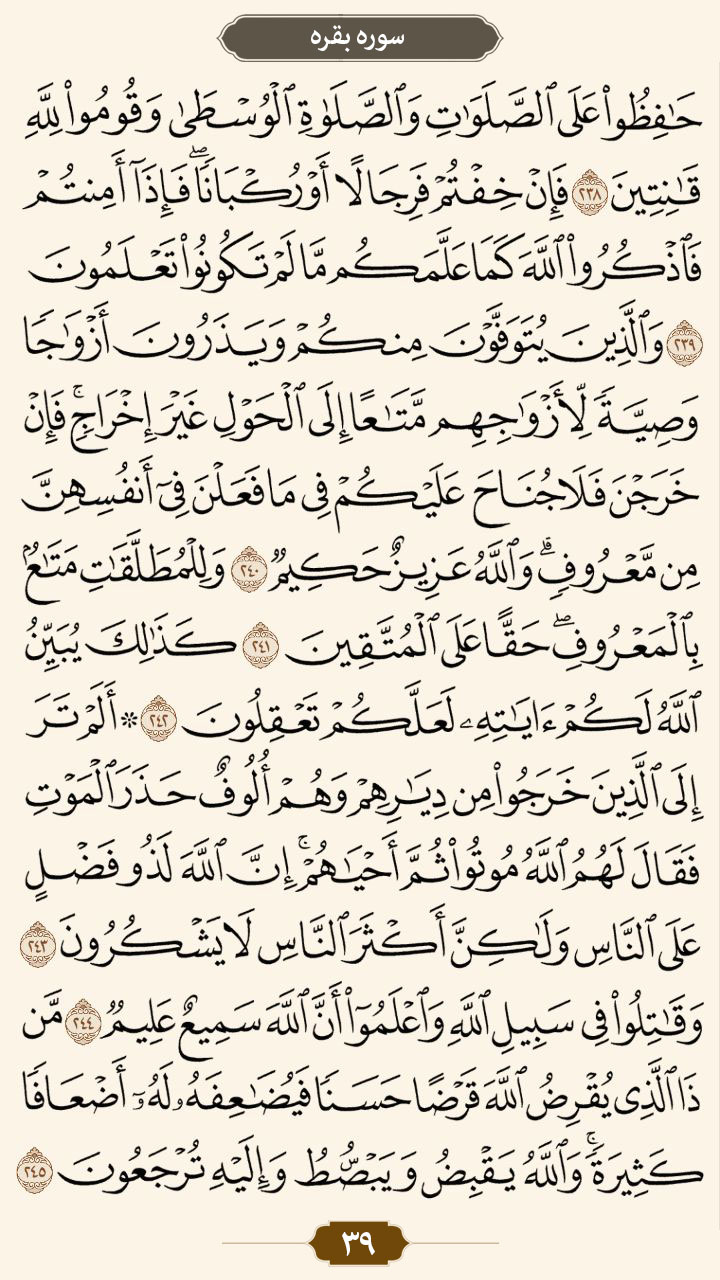 سوره بقره
حَٰفِظُوا۟ عَلَى ٱلصَّلَوَٰتِ وَٱلصَّلَوٰةِ ٱلْوُسْطَىٰ وَقُومُوا۟ لِلَّهِ
قَٰنِتِينَ ٢٣٨ فَإِنْ خِفْتُمْ فَرِجَالًا أَوْ رُكْبَانًا ۖ فَإِذَآ أَمِنتُمْ
فَٱذْكُرُوا۟ ٱللَّهَ كَمَا عَلَّمَكُم مَّا لَمْ تَكُونُوا۟ تَعْلَمُونَ
٢٣٩ وَٱلَّذِينَ يُتَوَفَّوْنَ مِنكُمْ وَيَذَرُونَ أَزْوَٰجًا
وَصِيَّةً لِّأَزْوَٰجِهِم مَّتَٰعًا إِلَى ٱلْحَوْلِ غَيْرَ إِخْرَاجٍ ۚ فَإِنْ
خَرَجْنَ فَلَا جُنَاحَ عَلَيْكُمْ فِى مَا فَعَلْنَ فِىٓ أَنفُسِهِنَّ
مِن مَّعْرُوفٍ ۗ وَٱللَّهُ عَزِيزٌ حَكِيمٌ ٢٤٠ وَلِلْمُطَلَّقَٰتِ مَتَٰعٌۢ
بِٱلْمَعْرُوفِ ۖ حَقًّا عَلَى ٱلْمُتَّقِينَ ٢٤١ كَذَٰلِكَ يُبَيِّنُ
ٱللَّهُ لَكُمْ ءَايَٰتِهِۦ لَعَلَّكُمْ تَعْقِلُونَ ٢٤٢ * أَلَمْ تَرَ
إِلَى ٱلَّذِينَ خَرَجُوا۟ مِن دِيَٰرِهِمْ وَهُمْ أُلُوفٌ حَذَرَ ٱلْمَوْتِ
فَقَالَ لَهُمُ ٱللَّهُ مُوتُوا۟ ثُمَّ أَحْيَٰهُمْ ۚ إِنَّ ٱللَّهَ لَذُو فَضْلٍ
عَلَى ٱلنَّاسِ وَلَٰكِنَّ أَكْثَرَ ٱلنَّاسِ لَا يَشْكُرُونَ ٢٤٣
وَقَٰتِلُوا۟ فِى سَبِيلِ ٱللَّهِ وَٱعْلَمُوٓا۟ أَنَّ ٱللَّهَ سَمِيعٌ عَلِيمٌ ٢٤٤ مَّن
ذَا ٱلَّذِى يُقْرِضُ ٱللَّهَ قَرْضًا حَسَنًا فَيُضَٰعِفَهُۥ لَهُۥٓ أَضْعَافًا
كَثِيرَةً ۚ وَٱللَّهُ يَقْبِضُ وَيَبْصُۜطُ وَإِلَيْهِ تُرْجَعُونَ ٢٤٥
٣٩